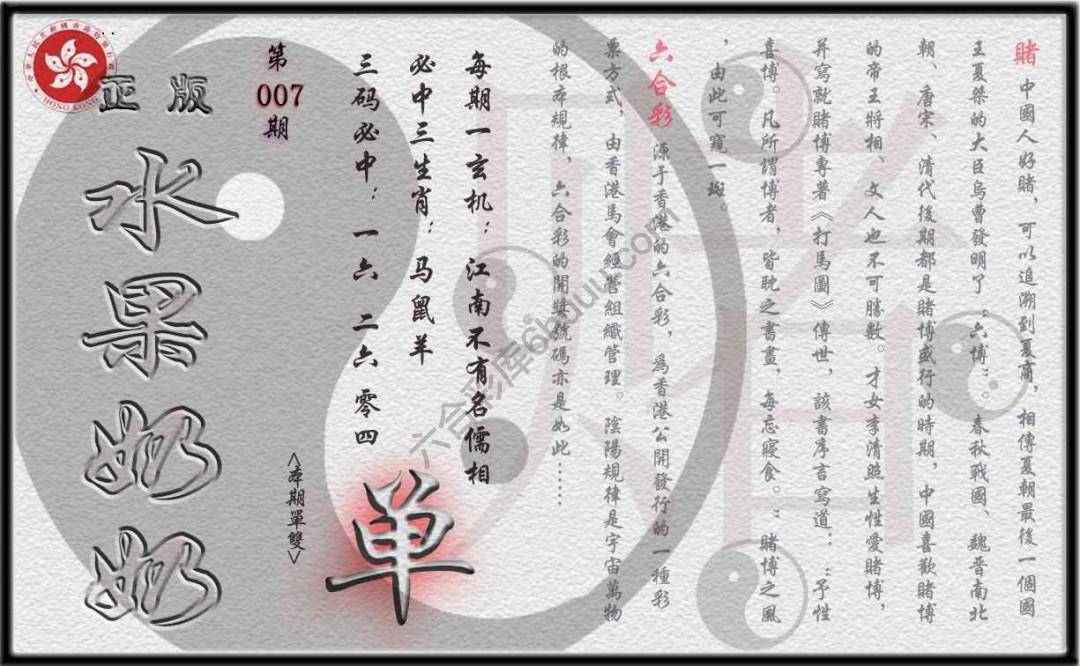 賭 中國人好賭，可以追溯到夏商，相傳夏朝最後一個國
王夏桀的大臣烏曹發明了“六博”。春秋戰國、魏晋南北
朝、唐宋、清代後期都是賭博盛行的時期，中國喜歡賭博
的帝王將相、文人也不可勝數。才女李清照生性愛賭博，
并寫就賭博專著《打馬圖》傳世，該書序言寫道：“予性
喜博。凡所謂博者，皆耽之書畫，每忘寢食。”賭博之風
，由此可窺一斑。
六合彩 源于香港的六合彩，為香港公開發行的一種彩
票方式，由香港馬會經營組織管理。陰陽規律是宇宙萬物
的根本規律，六合彩的開獎號碼亦是如此……
每期一玄机：江南不有名儒相
必中三生肖：马鼠羊
三码必中：一六 二六 零四
单
<本期單雙>
第
007
期
正版
水果奶奶
HONG KONG
六合彩库66uuu.com